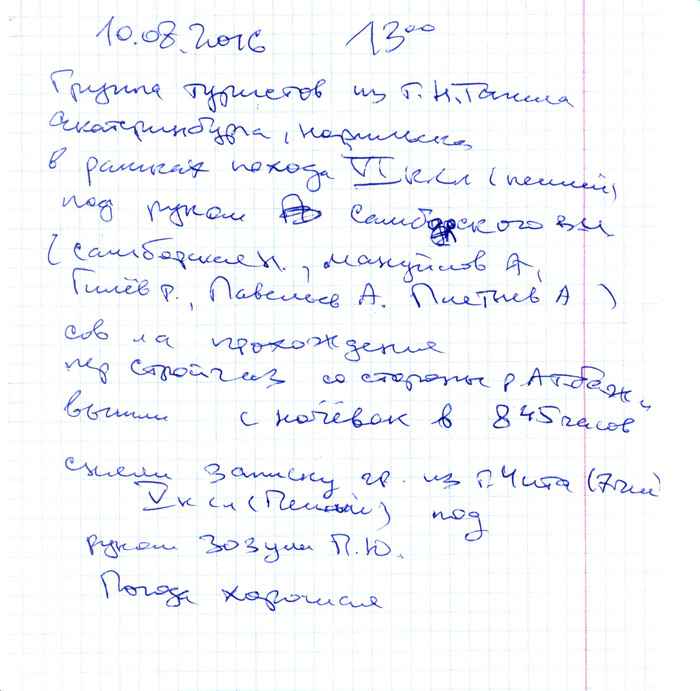 10.08.2016 13⁰⁰
Группа туристов из г. Н.Тагила
Екатеринбурга, Норильска,
в рамках похода VI к.сл (пеший)
под руков Самборского В.Н.
(Самборская Н., Мануйлов А,
Гилёв Р., Павельев А. Плетнев А)
сов ла прохождение
пер Стройгаз со стороны р. Атбаж,
вышли с ночёвок в 8 45 часов
сняли записку гр. из г. Чита (7 чел)
V к сл (Пеший) под
руков Зозули П.Ю.
Погода хорошая